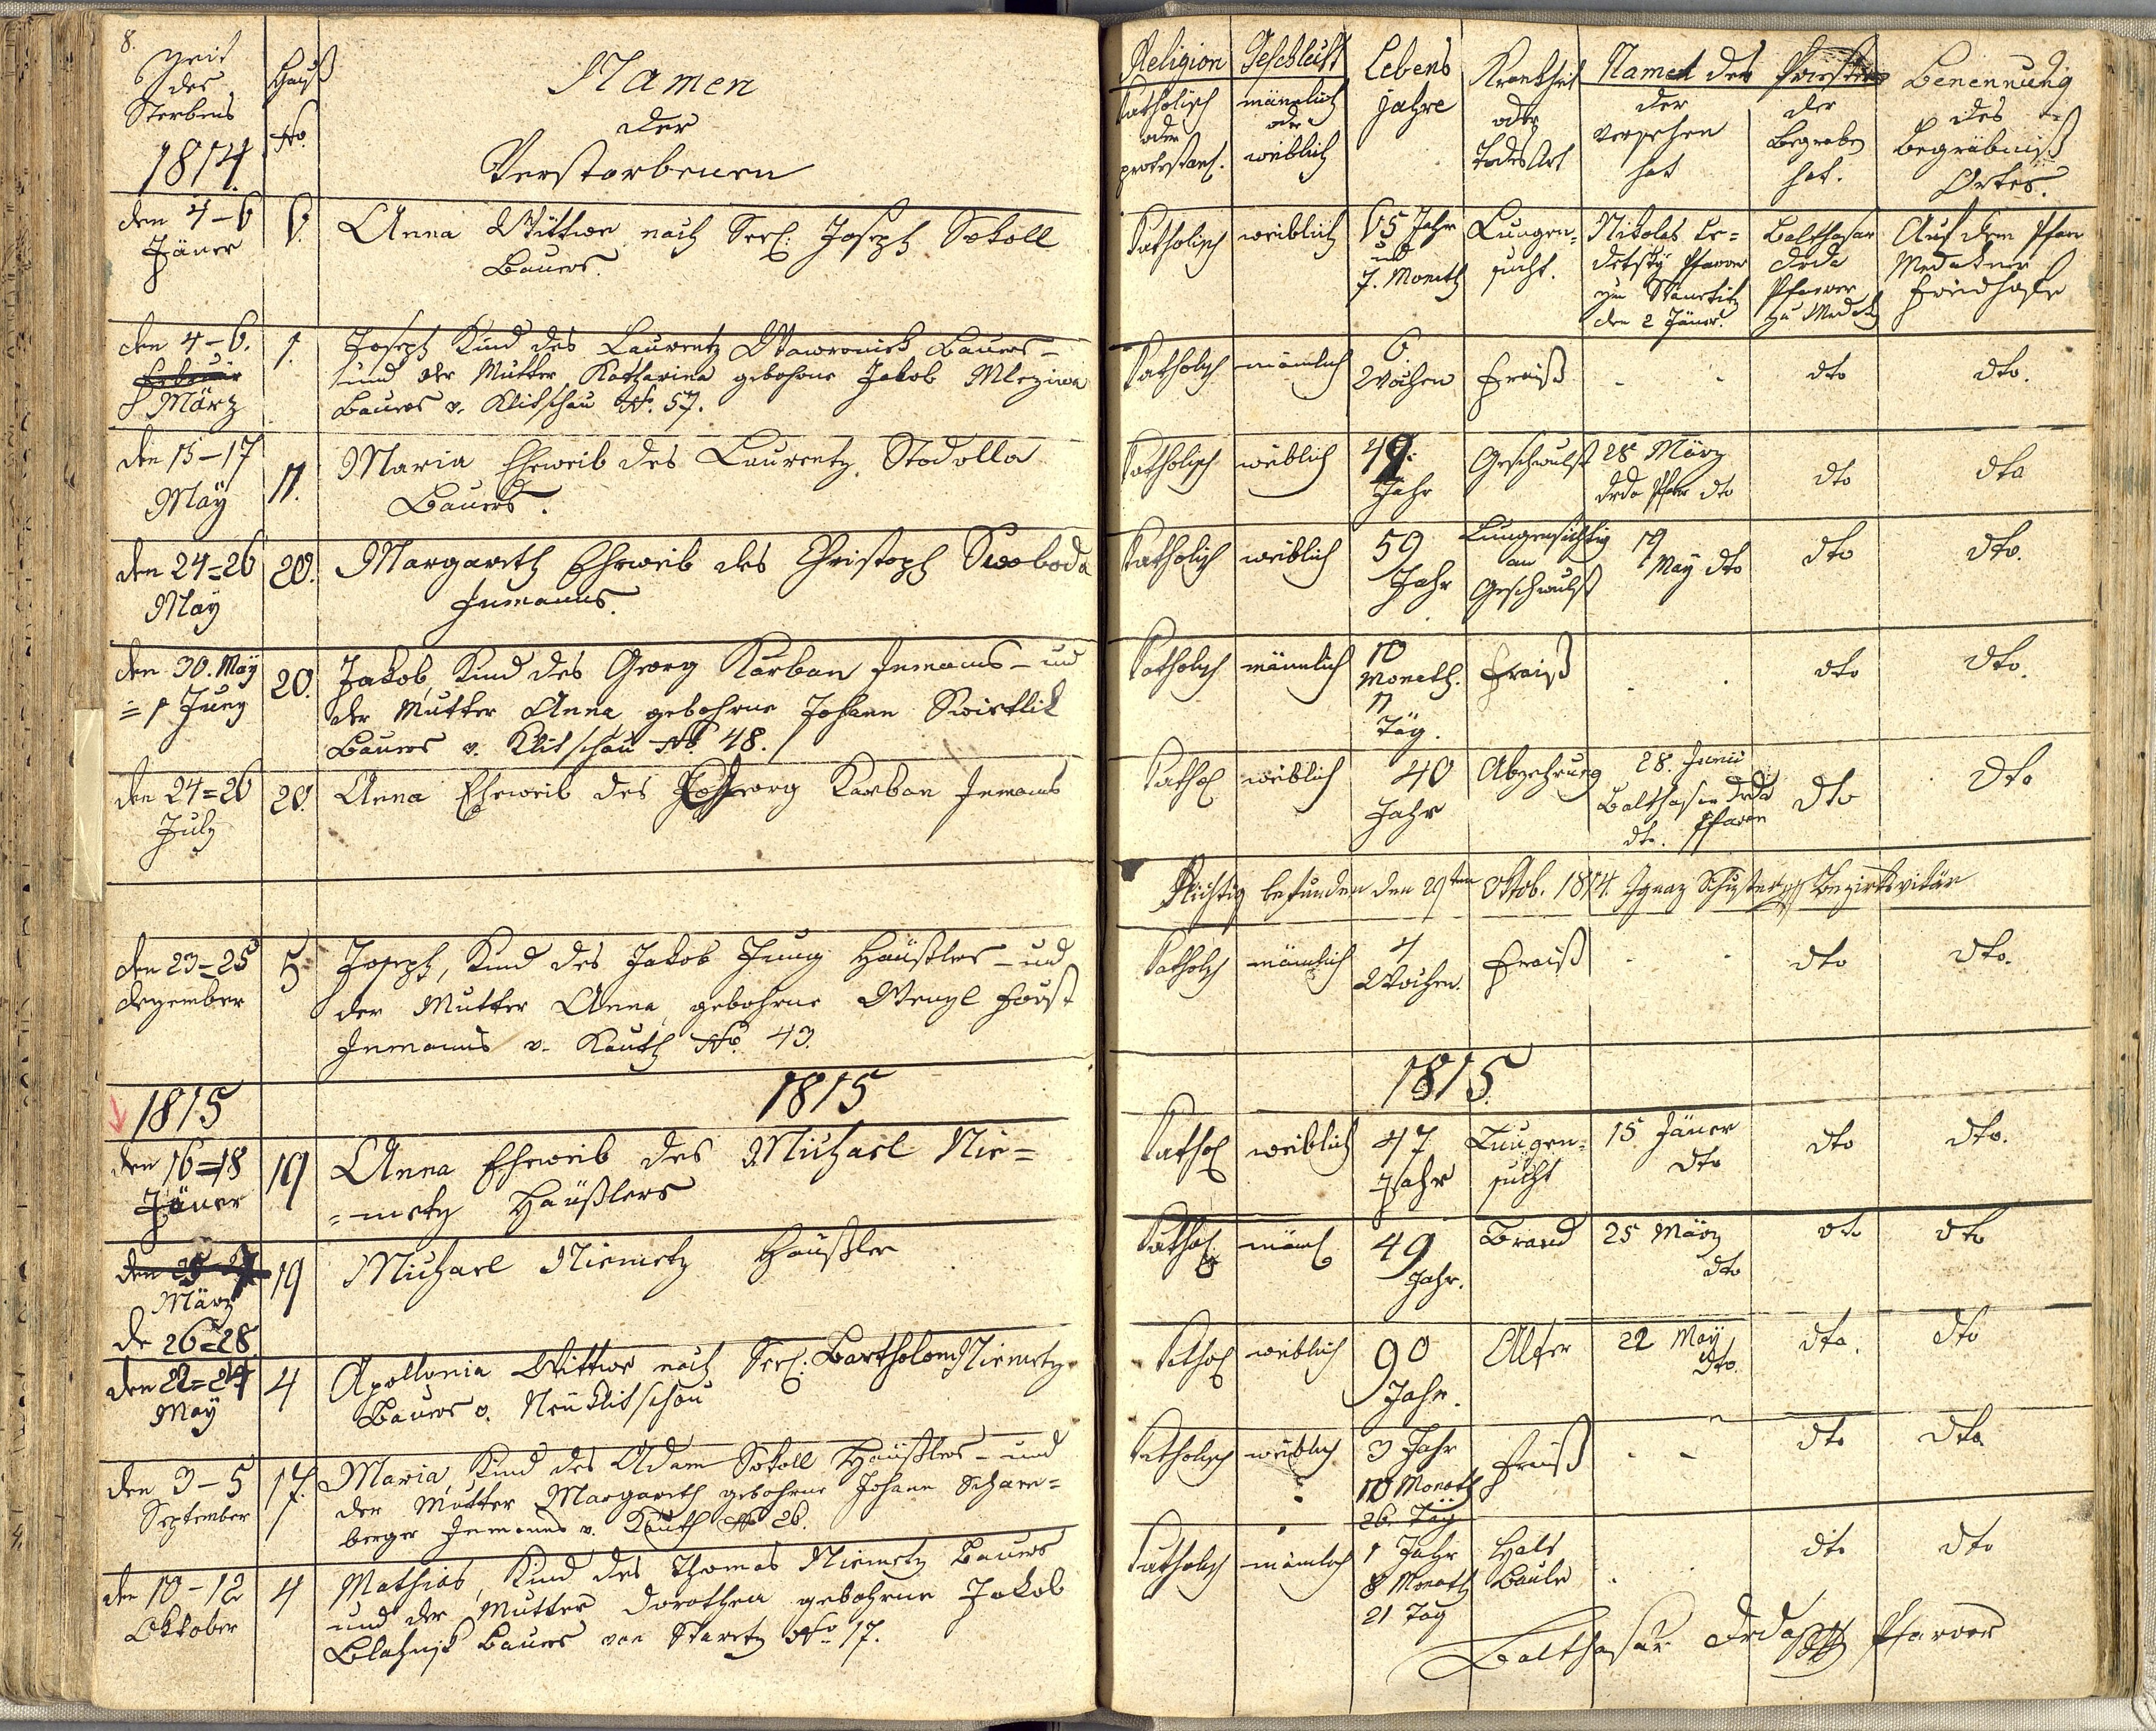 8.
Zeit
des
Sterbens
1814.
Hauß
No.
Namen
der
Verstorbenen
den 4-6
Jäner
6.
Anna Wittwe nach Seel: Joseph Sokoll
Bauers.
den 4-6.
Februar
März
1.
Joseph Kind des Laurentz Wawronick Bauers-
und der Mutter Katharina gebohrne Jakob Mleziwa
Bauers v. Klitschau No. 57.
den 15-17
May
11.
Maria Eheweib des Laurentz Stodolla
Bauers.
den 24=26
May
20.
Margareth Eheweib des Christoph Swoboda
Inmanns.
den 30. May
= 1 Juny
20.
Jakob, Kind des Georg Karban Inmans - und
der Mutter Anna gebohrne Johann Swietlik
Bauers v. Klitschau No. 48.
den 24=26
July
20.
Anna Eheweib des Georg Karban Inmans
den 23=25
Dezember
5
Joseph, Kind des Jakob Jung Häußlers - und
der Mutter Anna, gebohrne Wenzl Forst
Inmanns v. Kauth No. 43.
1815
1815
den 16=18
Jäner
19
Anna Eheweib des Michael Nie=
=metz Häußlers
den 25
März
de 26=28.
19
Michael Niemetz Häußler
den 22=24
May
4
Apollonia Wittwe nach Seel: Bartholom Niemetz
Bauers v. Neuklitschau
den 3-5
September
17.
Maria, Kind des Adam Sokoll Häußlers - und
der Mutter Margareth gebohrne Johann Scharn=
berger Inmanns v. Kauth No 26.
den 10-12
Oktober
4
Mathias, Kind des Thomas Niemetz Bauers
und der Mutter Dorothea gebohrne Jakob
Blahnik Bauers von Stanetz No 17.
Religion
Katholisch
oder
protestant.
Geschlecht
männlich
oder
weiblich
Lebens
jahre
Krankheit
oder
Todes Art
Namen des Priesters
der
versehen
hat
der
Begraben
hat.
Benennung
des
Begräbniß
Ortes.
Katholisch
weiblich
65 Jahr
und
7. Monath
Lungen=
sucht.
Nikolas Le=
detsky Pfarrer
zu Stanetitz
den 2 Jäner.
Balthasar
Drda
Pfarrer
zu Medak
Auf dem Pfarr
Medakner
Friedhofe
Katholisch
männlich
6
Wochen
Fraiß
- -
dto
dto.
Katholisch
weiblich
49:
Jahr
Geschwulst
28 März
Drda Pfarr dto
dto
dto
Katholisch
weiblich
59
Jahr
Lungensüchtig
an
Geschwulst
19
May dto
dto
dto.
Katholisch
männlich
10
Monath.
11
Täg.
Fraiß
. .
dto
dto.
Kathol
weiblich
40
Jahr
Abzehrung
28. Juni
Balthasar Drda
dto. Pfarrer
dto
dto
Richtig befunden den 29ten Oktob. 1814. Ignaz Schuster Bezirksvikär
Katholisch
männlich
4
Wochen.
Fraiß
- -
dto
dto.
1815.
Kathol
weiblich
47
Jahr
Lungen=
sucht
15 Jäner
dto
dto
dto.
Kathol
männl
49
Jahr.
Brand
25 März
dto
dto
dto
Kathol
weiblich
90
Jahr.
Alter
22 May
dto.
dto.
dto
Katholisch
weiblich
3 Jahr
10 Monath
26 Täg
Fraiß
- -
dto
dto
Katholisch
männlich
1 Jahr
8 Monath
21 Tag
Hals
Bäule
.
dto
dto
Balthasar Drda Pfarrer